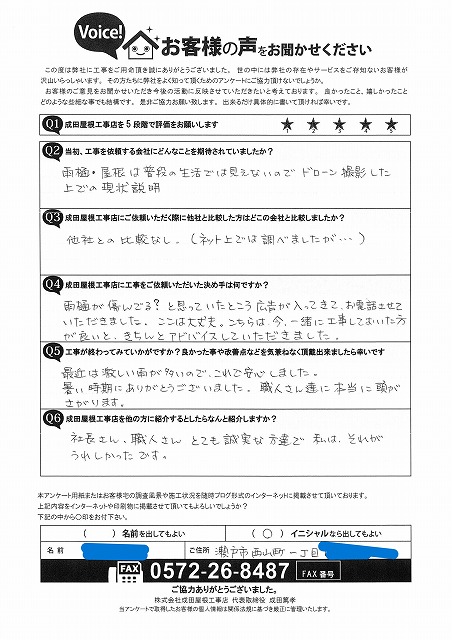 Voice!
お客様の声をお聞かせください
この度は弊社に工事をご用命頂き誠にありがとうございました。世の中には弊社の存在やサービスをご存知ないお客様が
沢山いらっしゃいます。その方たちに弊社をよく知って頂くためのアンケートにご協力頂けないでしょうか。
お客様のご意見をお聞かせいただき今後の活動に反映させていただきたいと考えております。良かったこと、嬉しかったこと
どのような些細な事でも結構です。是非ご協力お願い致します。出来るだけ具体的に書いて頂ければ幸いです。
Q1 成田屋根工事店を5段階で評価をお願いします
1 2 3 4 5
Q2 当初、工事を依頼する会社にどんなことを期待されていましたか?
雨樋・屋根は普段の生活では見えないのでドローン撮影した
上での現状説明
Q3 成田屋根工事店にご依頼いただく際に他社と比較した方はどこの会社と比較しましたか?
他社との比較なし。(ネット上では調べましたが・・・)
Q4 成田屋根工事店に工事をご依頼いただいた決め手は何ですか?
雨樋が傷んでる?と思っていたところ広告が入ってきて、お電話させて
いただきました。ここは大丈夫。こちらは、今、一緒に工事しておいた方
が良いと、きちんとアドバイスしていただきました。
Q5 工事が終わってみていかがですか?良かった事や改善点などを気兼ねなく頂戴出来ましたら幸いです
最近は激しい雨が多いので、これで安心しました。
暑い時期にありがとうございました。職人さん達に本当に頭が
さがります。
Q6 成田屋根工事店を他の方に紹介するとしたらなんと紹介しますか?
社長さん、職人さん とても誠実な方達で私は、それが
うれしかったです。
本アンケート用紙またはお客様宅の調査風景や施工状況を随時ブログ形式のインターネットに掲載させて頂いております。
上記内容をインターネットや印刷物に掲載させて頂いてもよろしいでしょうか?
下記の中から〇印をお付下さい。
( )名前を出してもよい
(○)イニシャルなら出してもよい
名前
ご住所 瀬戸市西山町一丁目
FAX 0572-26-8487 FAX番号
ご協力ありがとうございました。
株式会社成田屋根工事店 代表取締役 成田篤孝
当アンケートで取得したお客様の個人情報は関係法規に基づき厳正に管理いたします。